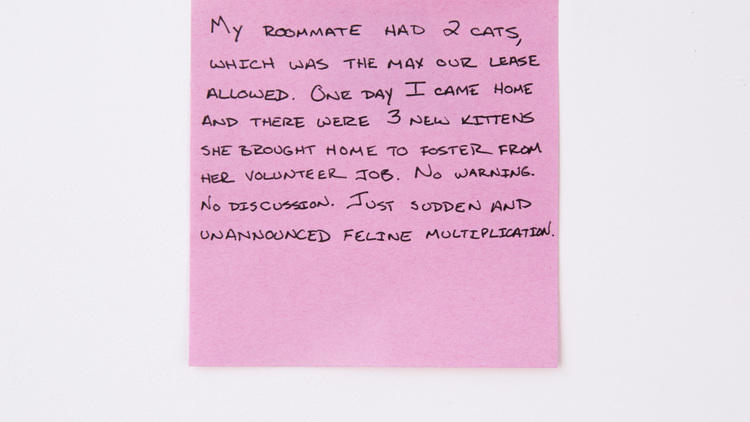 My ROOMMATE HAD 2 CATS,
WHICH WAS THE MAX OUR LEASE
ALLOWED. ONE DAY I CAME HOME
AND THERE WERE 3 NEW KITTENS
SHE BROUGHT HOME TO FOSTER FROM
HER VOLUNTEER JOB. NO WARNING.
NO DISCUSSION. JUST SUDDEN AND
UNANNOUNCED FELINE MULTIPLICATION.